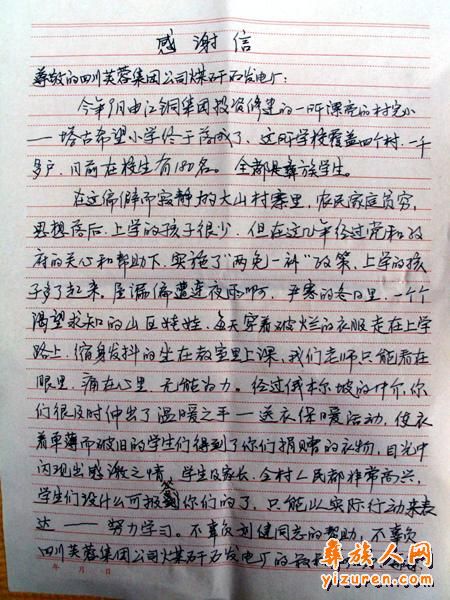 感谢信
尊敬的四川芙蓉集团公司煤矸石发电厂：
今年9月由江铜集团投资修建的一所漂亮的村完小
——塔古希望小学终于落成了，这所学校覆盖四个村，一千
多户，目前在校生有180名。全都是彝族学生。
在这偏僻而寂静的大山村寨里，农民家庭贫穷，
思想落后，上学的孩子很少，但在这几年经过党和政
府的关心和帮助下，实施了“两免一补”政策，上学的孩
子多了起来。屋漏偏遭连夜雨啊，严寒的冬日里，一个个
渴望求知的山区娃娃，每天穿着破烂的衣服走在上学
路上，缩身发抖的坐在教室里上课，我们老师只能看在
眼里，痛在心里，无能为力。经过俄木尔坡的中介，你
们很及时伸出了温暖之手——送衣保暖活动，使衣
着单薄而破旧的学生们得到了你们捐赠的衣物，目光中
闪现出感激之情，学生及家长、全村人民都非常高兴，
学生们没什么可报答你们的了，只能以实际行动来表
达——努力学习。不辜负刘健同志的帮助，不辜负
四川芙蓉集团公司煤矸石发电厂的
年 月 日
彝族人网
yizuren.com